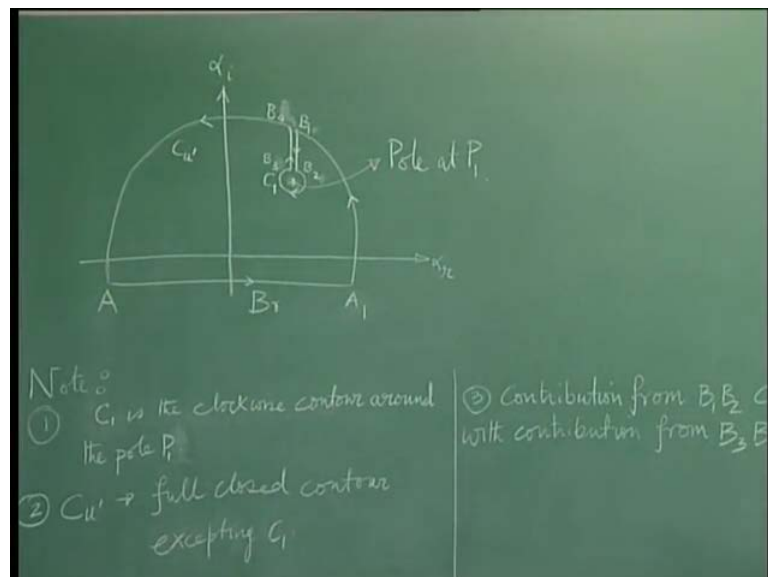 αi
B4 B1
Cu'
B3 B2
C1
Pole at P1.
αr
A Br A1
Note:
① C1 is the clockwise contour around
the pole P1
② Cu' → full closed contour
excepting C1
③ Contribution from B1B2 C
with contribution from B3 B